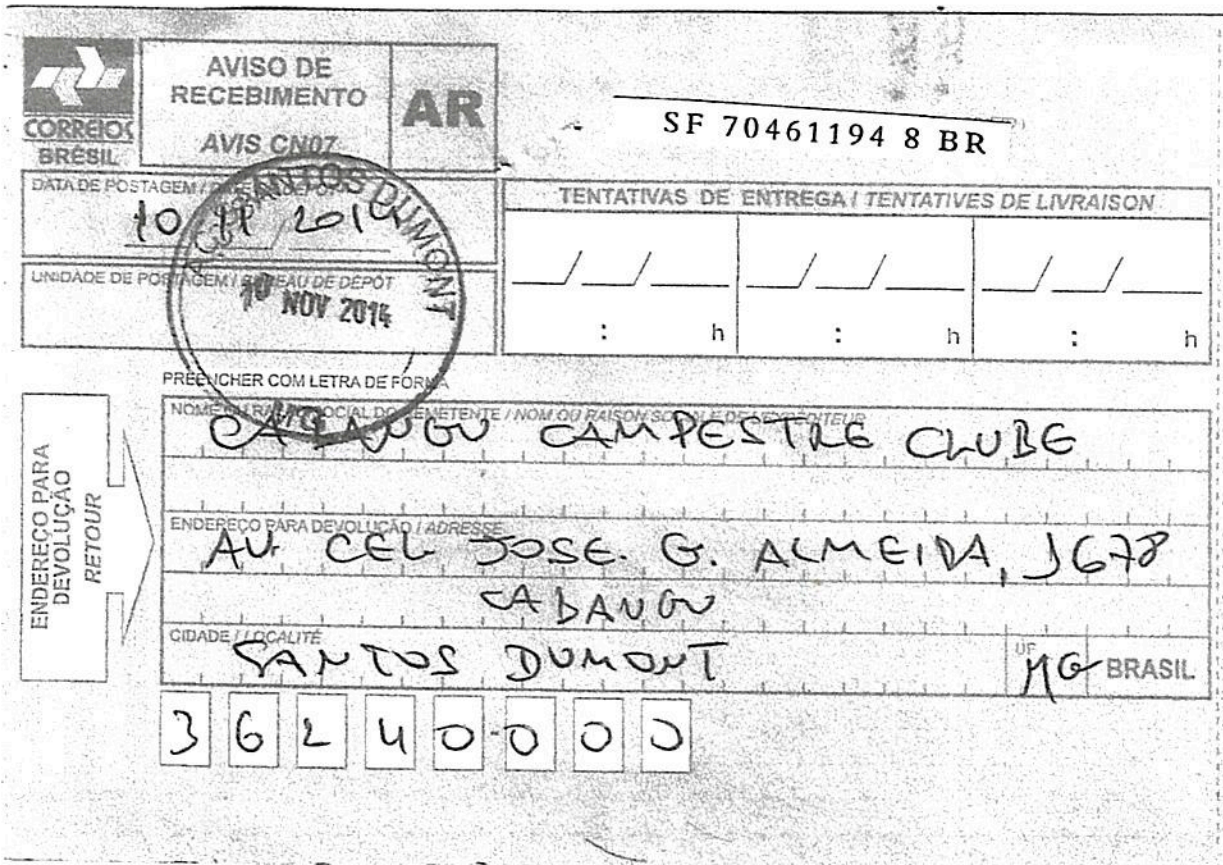 CORREIOS
BRÉSIL
AVISO DE
RECEBIMENTO
AVIS CN07
AR
SF 70461194 8 BR
DATA DE POSTAGEM /
10 / 11 / 2014
UNIDADE DE POSTAGEM / BUREAU DE DÉPÔT
SANTOS DUMONT
10 NOV 2014
MG
TENTATIVAS DE ENTREGA / TENTATIVES DE LIVRAISON
__/__/__ __/__/__ __/__/__
: h : h : h
PREENCHER COM LETRA DE FORMA
ENDEREÇO PARA
DEVOLUÇÃO
RETOUR
NOME OU RAZÃO SOCIAL DO REMETENTE / NOM OU RAISON SOCIALE DE L'EXPÉDITEUR
CABANGU CAMPESTRE CLUBE
ENDEREÇO PARA DEVOLUÇÃO / ADRESSE
AV. CEL JOSE. G. ALMEIDA, 1678
CABANGU
CIDADE / LOCALITÉ
SANTOS DUMONT
UF
MG BRASIL
36240-000